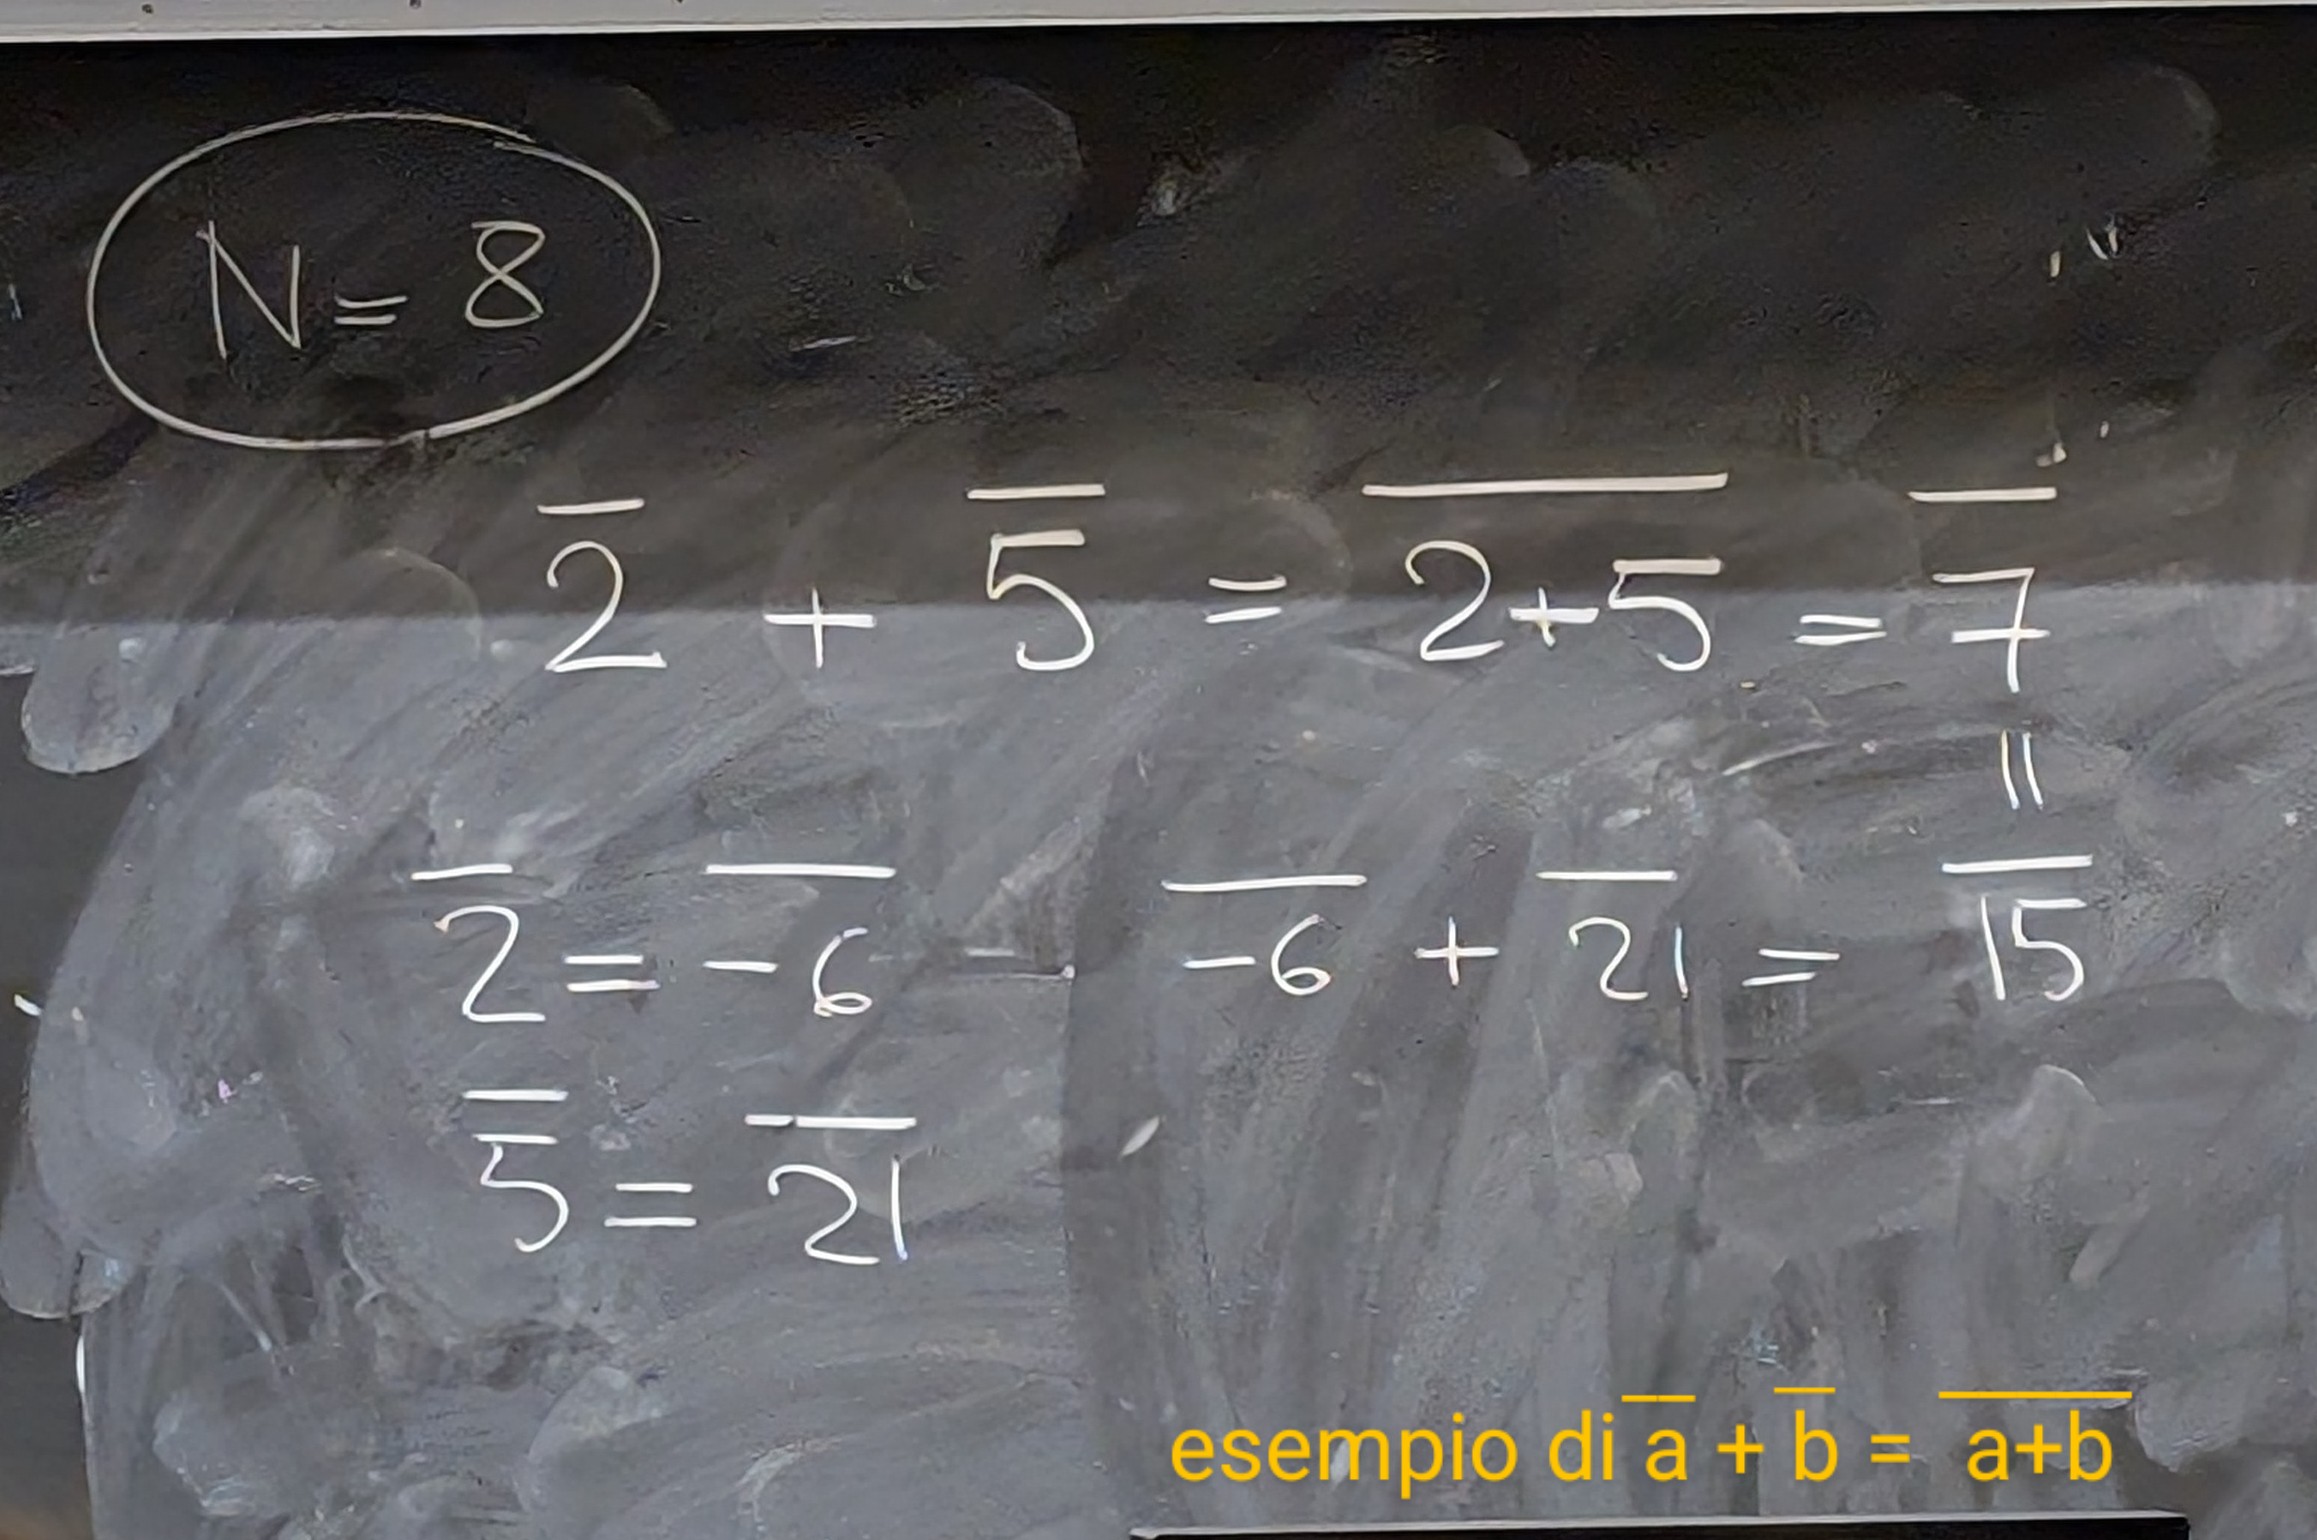 N = 8
2̅ + 5̅ = 2̅+̅5̅ = 7̅
||
2̅ = -̅6̅ -̅6̅ + 2̅1̅ = 1̅5̅
5̅ = 2̅1̅
esempio di a̅ + b̅ = a̅+̅b̅